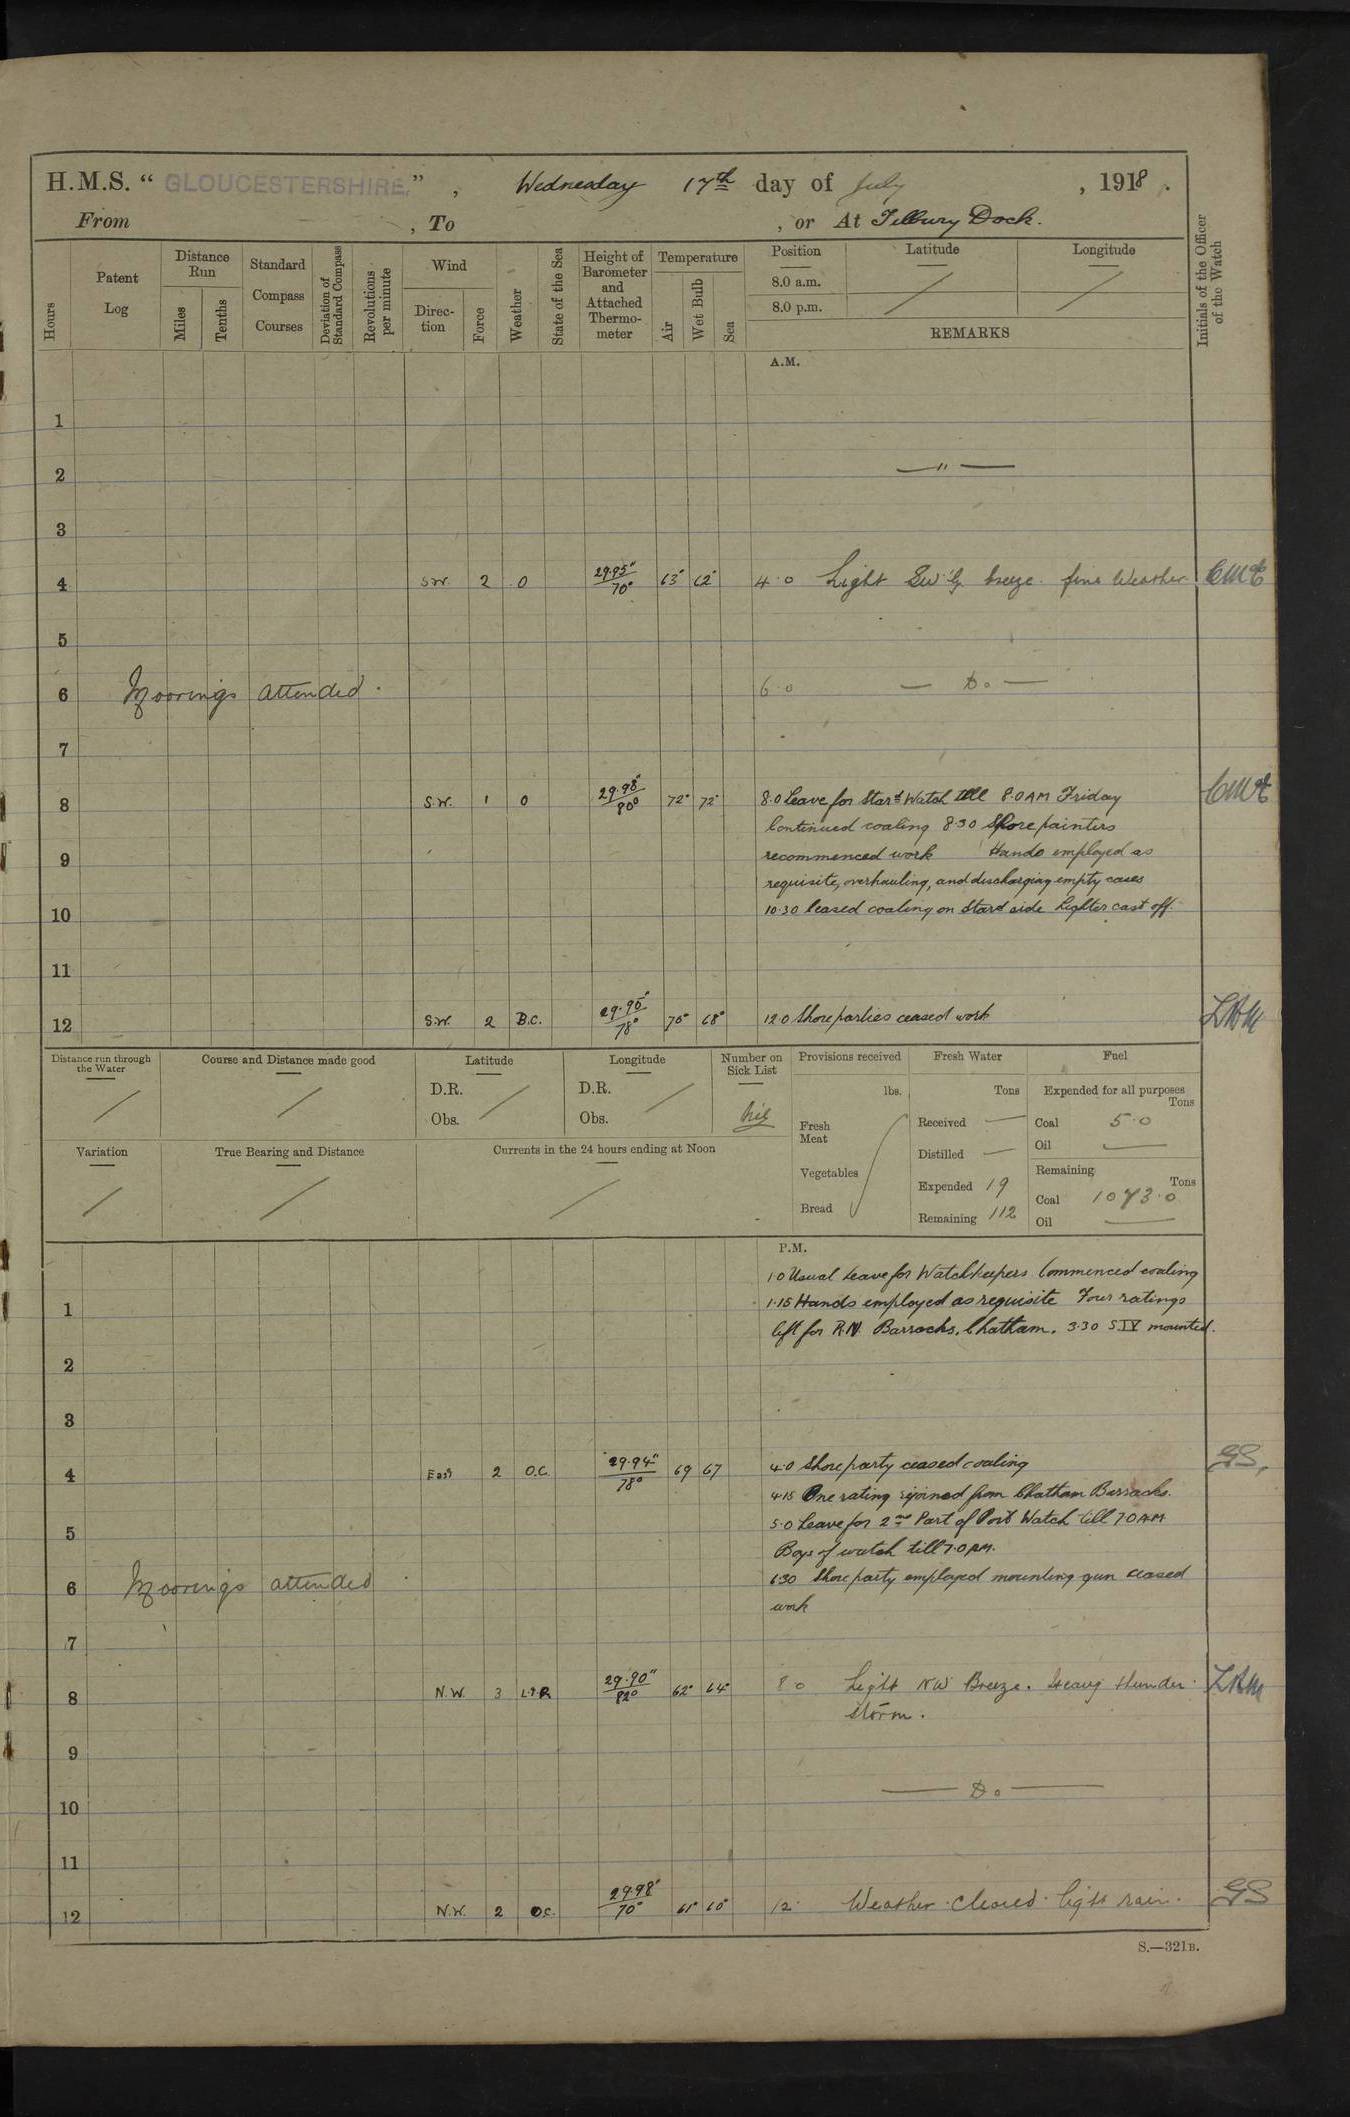 H.M.S. “ GLOUCESTERSHIRE, ” , Wednesday 17th day of July , 1918 .
From , To , or At Tilbury Dock.
Hours
Patent Log
Distance Run
Miles
Tenths
Standard Compass Courses
Deviation of Standard Compass
Revolutions per minute
Wind
Direc-tion
Force
Weather
State of the Sea
Height of Barometer and Attached Thermo-meter
Temperature
Air
Wet Bulb
Sea
Position
8.0 a.m.
8.0 p.m.
Latitude
Longitude
REMARKS
Initials of the Officer of the Watch
A.M.
1
2 — " —
3
4 S.W. 2 O 29.95" / 70° 63° 62° 4.0 Light SW'ly breeze. fine Weather
5
6 Moorings attended. 6.0 — Do —
7
8 S.W. 1 O 29.98" / 80° 72° 72° 8.0 Leave for Stard Watch till 8.0 AM Friday
Continued coaling 8.30 Shore painters
9 recommenced work Hands employed as
requisite, overhauling, and discharging empty cases
10 10.30 Ceased coaling on Stard side Lighter cast off.
11
12 S.W. 2 B.C. 29.95" / 78° 70° 68° 12.0 Shore parties ceased work LAM
Distance run through the Water
Course and Distance made good
Latitude
D.R.
Obs.
Longitude
D.R.
Obs.
Number on Sick List
Nil
Provisions received
lbs.
Fresh Meat
Vegetables
Bread
Fresh Water
Tons
Received —
Distilled —
Expended 19
Remaining 112
Fuel
Expended for all purposes
Tons
Coal 5.0
Oil —
Remaining
Tons
Coal 1073.0
Oil —
Variation
True Bearing and Distance
Currents in the 24 hours ending at Noon
P.M.
1.0 Usual leave for Watchkeepers Commenced coaling
1 1.15 Hands employed as requisite Four ratings
left for R.N. Barracks, Chatham. 3.30 S IV mounted.
2
3
4 East 2 O.C. 29.94" / 78° 69 67 4.0 Shore party ceased coaling GS,
4.15 One rating rejoined from Chatham Barracks.
5 5.0 Leave for 2nd Part of Port Watch till 7.0 AM
Boys of watch till 7.0 PM.
6 Moorings attended 6.30 Shore party employed mounting gun ceased
work
7
8 N.W. 3 29.90" / 82° 62° 64° 8.0 Light NW Breeze. Heavy thunder LAM
storm.
9
10 — Do —
11
12 N.W. 2 O.C. 29.98" / 70° 61° 60° 12. Weather cleared. light rain. GS
S.—321B.